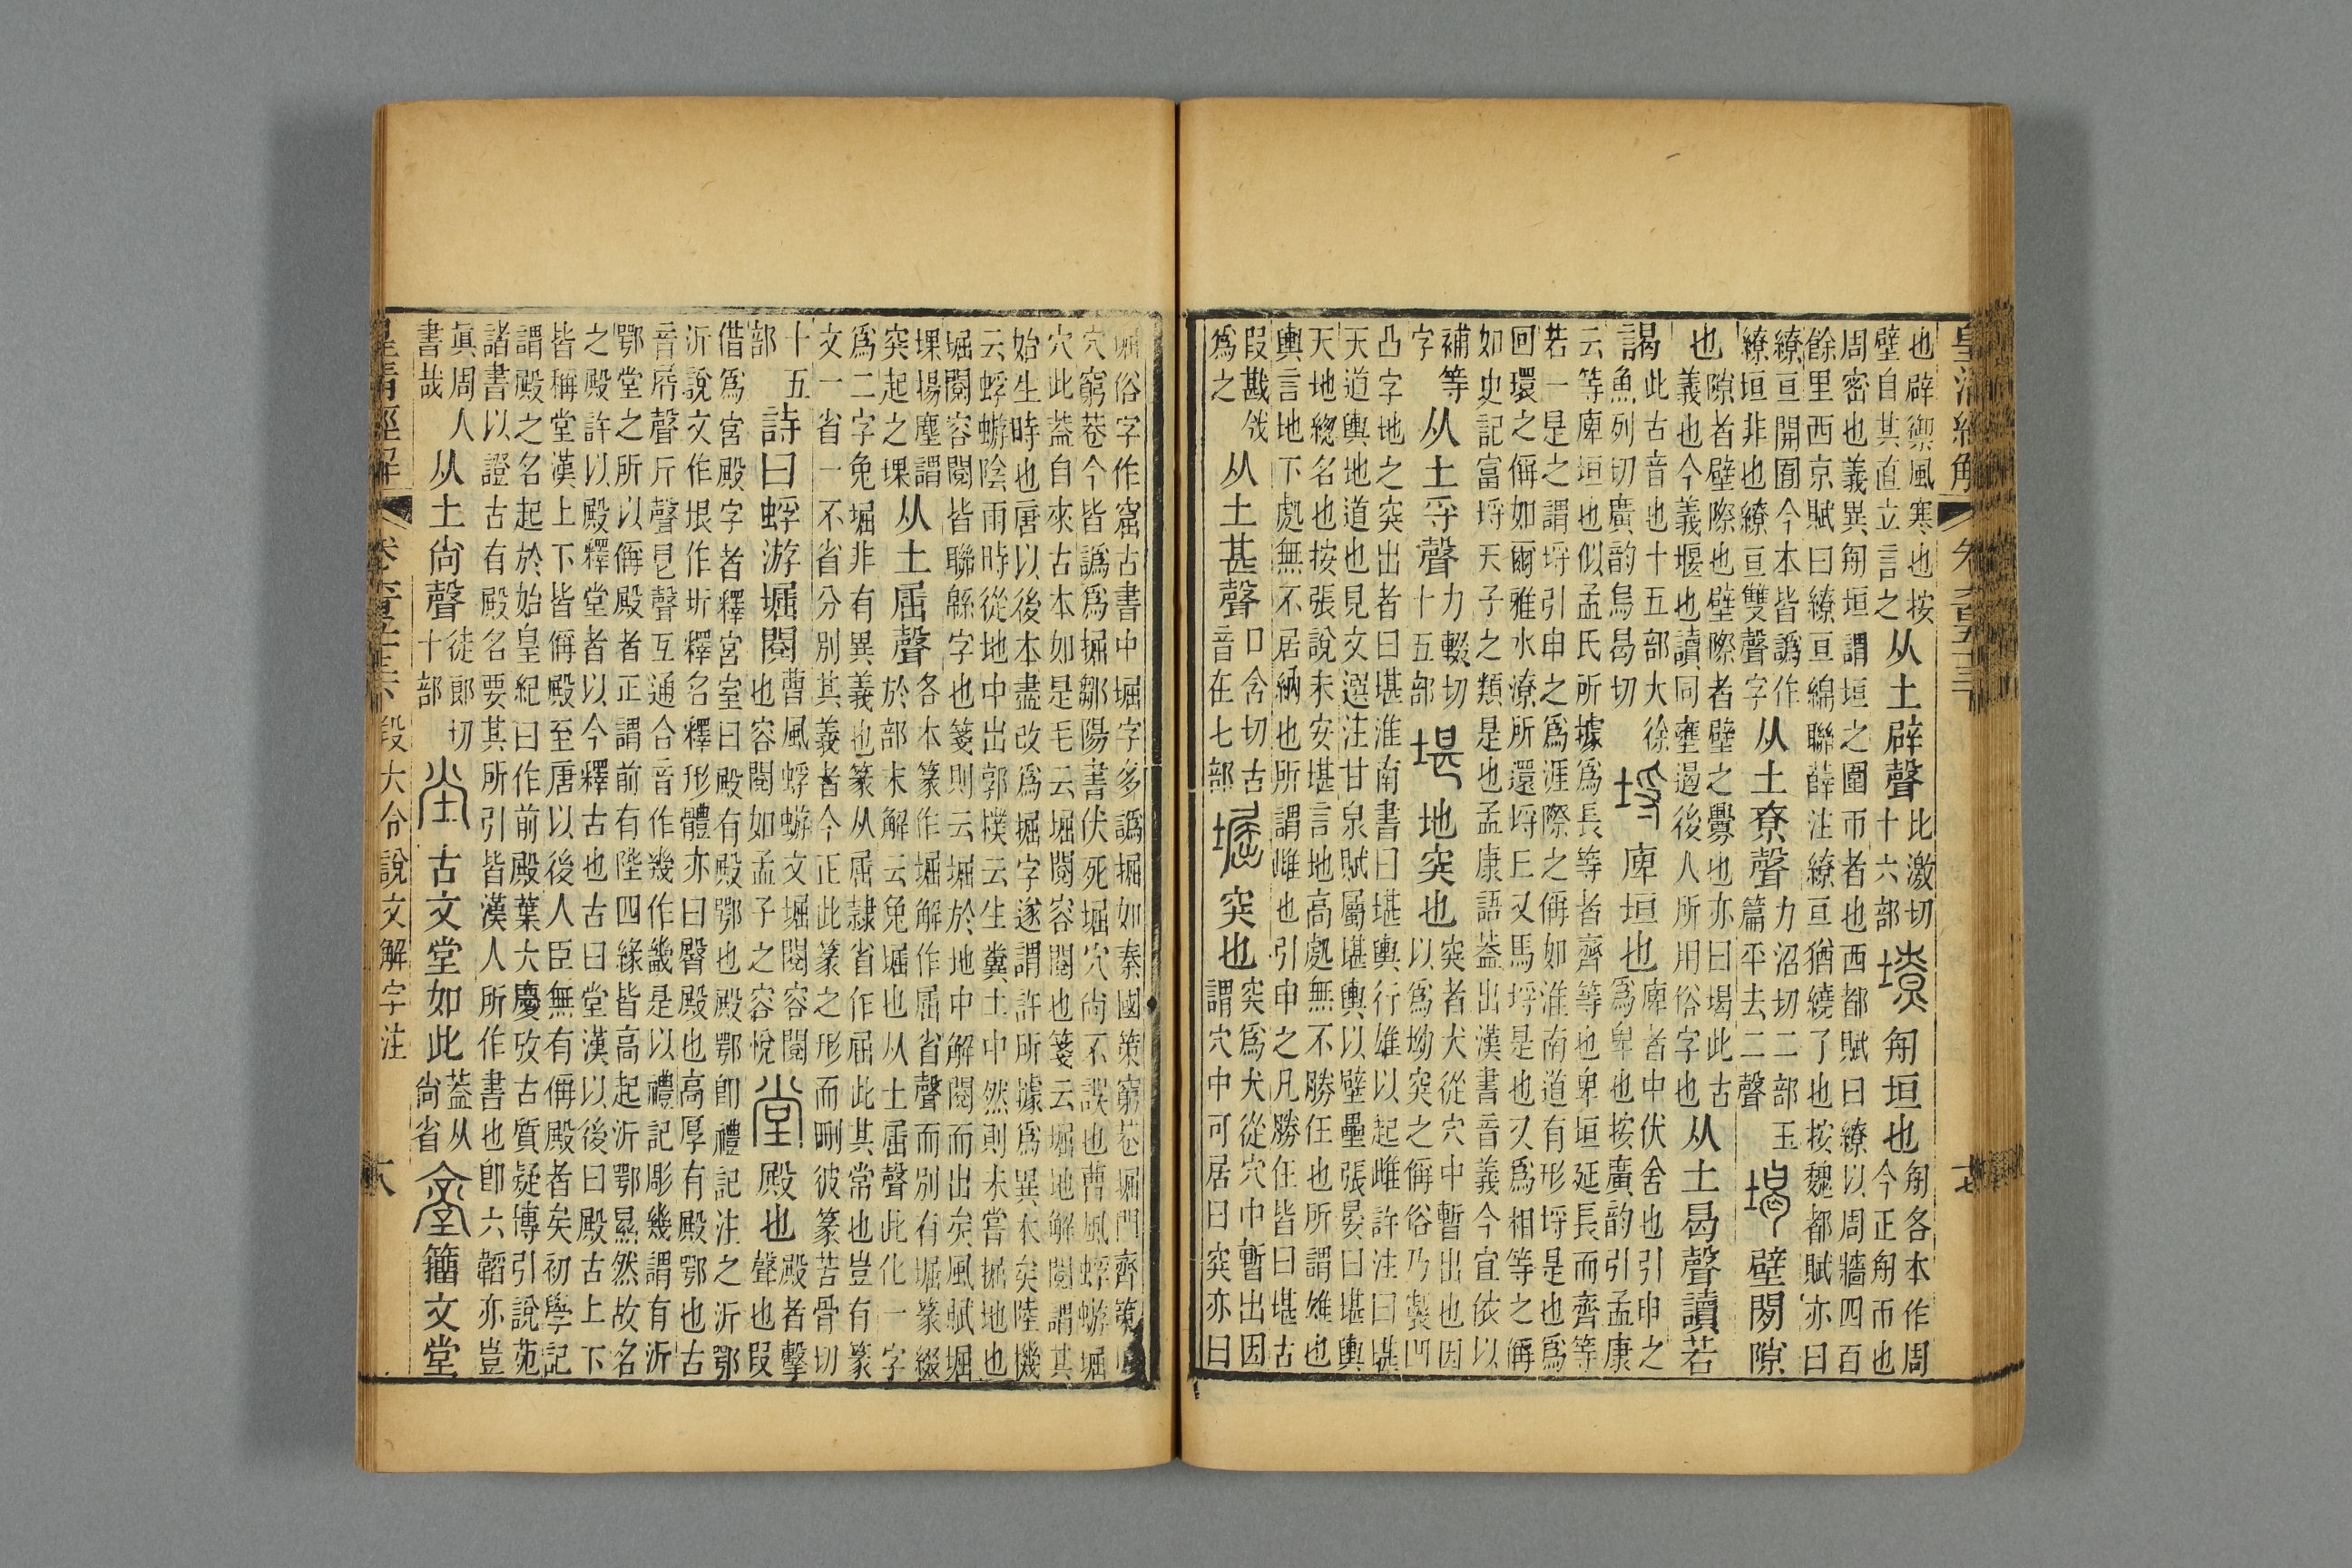 皇清經解 卷六百五十三 七
也辟禦風寒也按壁自其直立言之从土辟聲比激切十六部 𡑺 匊垣也匊各本作周今正匊帀也
周密也義異匊垣謂垣之圍帀者也西都賦曰繚以周牆四百
餘里西京賦曰繚亘綿聯薛注繚亘猶繞了也按魏都賦亦曰
繚亘開囿今本皆譌作繚垣非也繚亘雙聲字从土尞聲力沼切二部玉篇平去二聲 堨 壁閒隙
也隙者壁際也壁際者壁之釁也亦曰堨此古義也今義堰也讀同壅遏後人所用俗字也从土曷聲讀若
謁此古音也十五部大徐魚列切廣韵烏曷切 埒 庳垣也庳者中伏舍也引申之爲卑也按廣韵引孟康
云等庳垣也似孟氏所據爲長等者齊等也卑垣延長而齊等
若一是之謂埒引申之爲涯際之偁如淮南道有形埒是也爲
回環之偁如爾雅水潦所還埒丘又馬埒是也又爲相等之偁
如史記富埒天子之類是也孟康語葢出漢書音義今宜依以
補等字从土寽聲力輟切十五部 堪 地突也突者犬從穴中暫出也因以爲坳突之偁俗乃製凹
凸字地之突出者曰堪淮南書曰堪輿行雄以起雌許注曰堪
天道輿地道也見文選注甘泉賦屬堪輿以壁壘張晏曰堪輿
天地緫名也按張說未安堪言地高處無不勝任也所謂雄也
輿言地下處無不居納也所謂雌也引申之凡勝任皆曰堪古
叚戡爲之从土甚聲口含切古音在七部 堀 突也突爲犬從穴中暫出因謂穴中可居曰突亦曰
堀俗字作窟古書中堀字多譌掘如秦國策窮巷堀門齊策
穴窮巷今皆譌爲掘鄒陽書伏死堀穴尙不誤也曹風蜉蝣堀
穴此葢自來古本如是毛云堀閱容閱也箋云堀地解閱謂其
始生時也唐以後本盡改爲掘字遂謂許所據爲異本矣陸機
云蜉蝣陰雨時從地中出郭樸云生糞土中然則未嘗掘地也
堀閱容閱皆聯緜字也箋則云堀於地中解閱而出矣風賦堀
堁揚塵謂突起之堁从土屈聲各本篆作堀解作屈省聲而別有堀篆綴
於部末解云兔堀也从土屈聲此化一字
爲二字兔堀非有異義也篆从屈隷省作屈此其常也豈有篆
文一省一不省分別其義者今正此篆之形而刪彼篆苦骨切
十五部詩曰蜉游堀閱曹風蜉蝣文堀閱容閱也容閱如孟子之容悅 堂 殿也殿者擊聲也叚
借爲宮殿字者釋宮室曰殿有殿鄂也殿鄂卽禮記注之沂鄂
沂說文作垠作圻釋名釋形體亦曰臀殿也高厚有殿鄂也古
音㞋聲斤聲㫐聲互通合音作幾作畿是以禮記彫幾謂有沂
鄂堂之所以偁殿者正謂前有陛四緣皆高起沂鄂㬎然故名
之殿許以殿釋堂者以今釋古也古曰堂漢以後曰殿古上下
皆稱堂漢上下皆偁殿至唐以後人臣無有偁殿者矣初學記
謂殿之名起於始皇紀曰作前殿葉大慶攷古質疑博引說苑
諸書以證古有殿名要其所引皆漢人所作書也卽六韜亦豈
眞周人書哉从土尙聲徒郎切十部 坣 古文堂如此葢从尙省 𡔙 籒文堂
皇清經解 卷六百五十三 段大令說文解字注 六